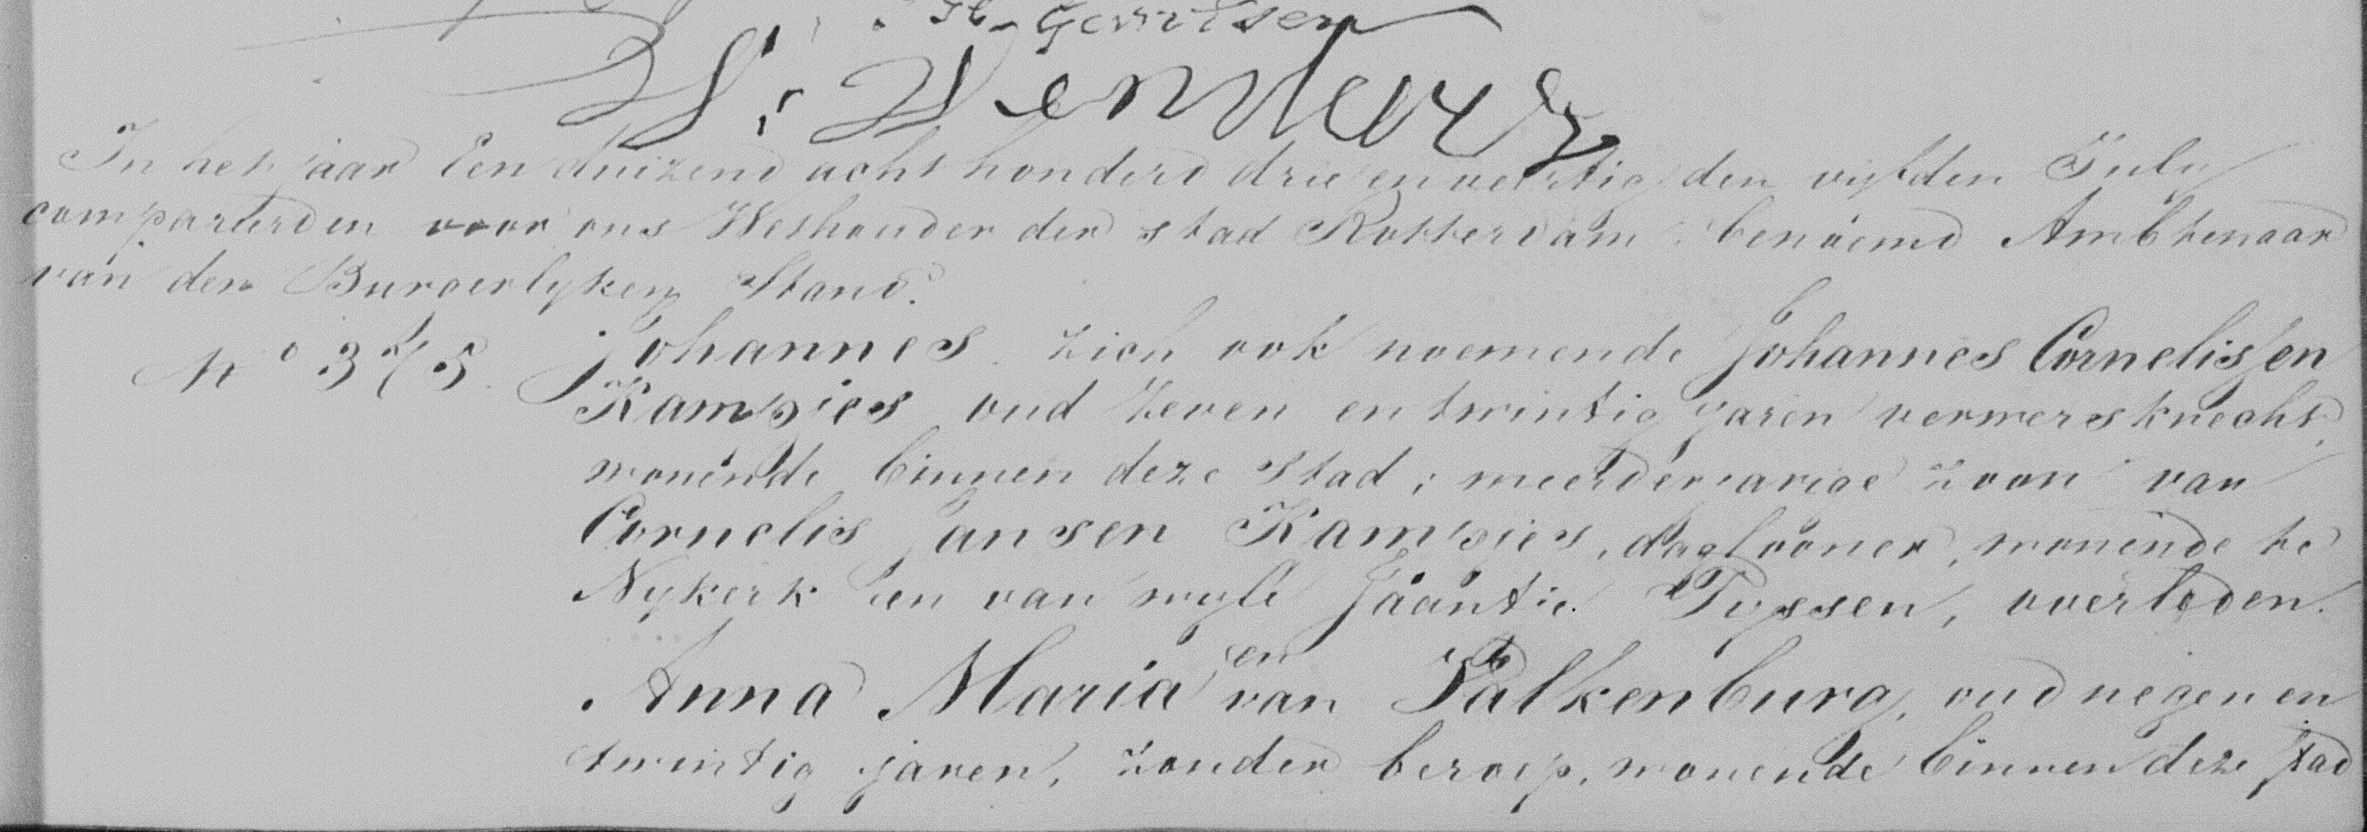 H. Gerritsen
In het jaar Een duizend acht honderd drie en veertig den vyfden July
compareerden voor ons Wethouder der stad Rotterdam benoemd Ambtenaar
van den Burgerlyken Stand.
No 375. Johannes zich ook noemende Johannes Cornelissen
Kampjes oud zeven en twintig jaren ververs knecht,
wonende binnen deze Stad, meerderjarige zoon van
Cornelis Jansen Kampjes, daglooner, wonende te
Nykerk en van wyle Jaantie Tyssen, overleden.
en
Anna Maria van Valkenburg, oud negen en
twintig jaren, zonder beroep, wonende binnen deze stad